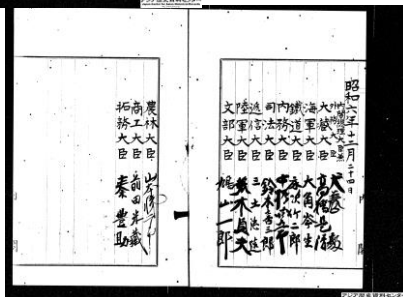 昭和六年十二月二十四日
内閣総理大臣兼
外務大臣 犬養毅
大蔵大臣 高橋是清
海軍大臣 大角岑生
鐵道大臣 床次竹二郎
内務大臣 中橋徳五郎
司法大臣 鈴木喜三郎
逓信大臣 三土忠造
陸軍大臣 荒木貞夫
文部大臣 鳩山一郎
農林大臣 山本悌二郎
商工大臣 前田米藏
拓務大臣 秦豊助
アジア歴史資料センター